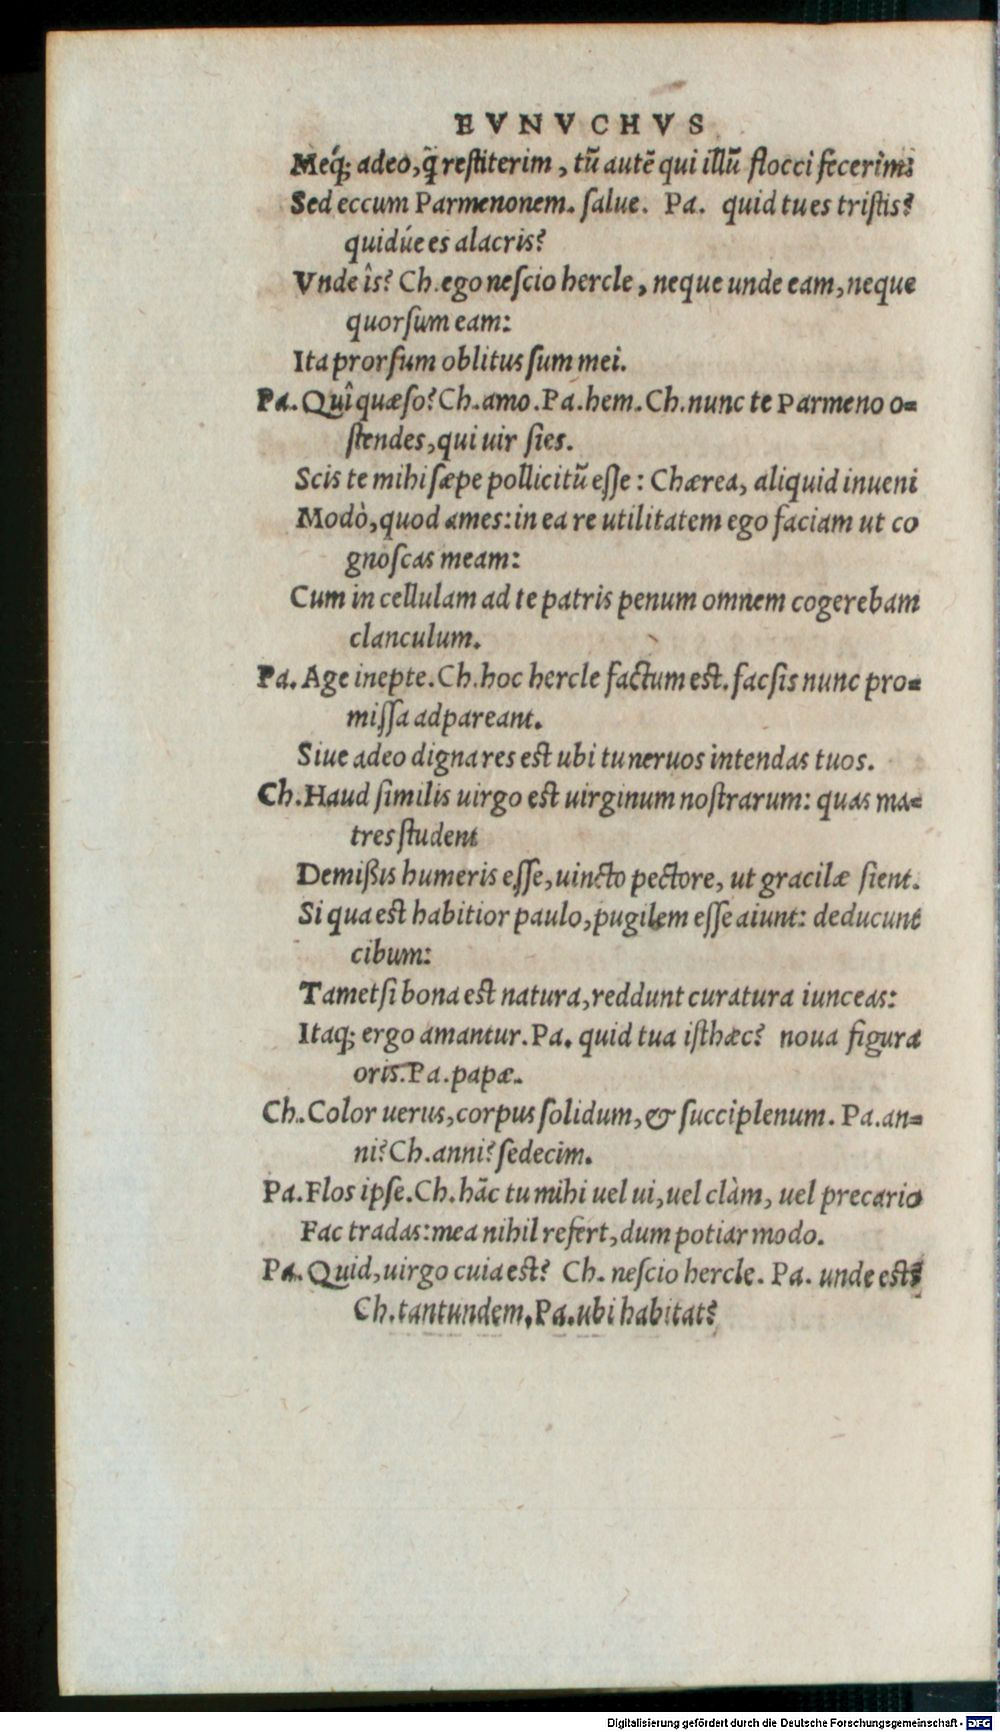 EVNVCHVS
Meq́; adeo, q̃ restiterim, tũ autẽ qui illũ flocci fecerim;
Sed eccum Parmenonem. salue. Pa. quid tu es tristis?
quidúe es alacris?
Vnde îs? Ch. ego nescio hercle, neque unde eam, neque
quorsum eam:
Ita prorsum oblitus sum mei.
Pa. Quî quæso? Ch. amo. Pa. hem. Ch. nunc te Parmeno o=
stendes, qui uir sies.
Scis te mihi sæpe pollicitũ esse: Chærea, aliquid inueni
Modò, quod ames: in ea re utilitatem ego faciam ut co
gnoscas meam:
Cum in cellulam ad te patris penum omnem cogerebam
clanculum.
Pa. Age inepte. Ch. hoc hercle factum est. fac sis nunc pro=
missa adpareant.
Siue adeo digna res est ubi tu neruos intendas tuos.
Ch. Haud similis uirgo est uirginum nostrarum: quas ma=
tres student
Demißis humeris esse, uincto pectore, ut gracilæ sient.
Si qua est habitior paulo, pugilem esse aiunt: deducunt
cibum:
Tametsi bona est natura, reddunt curatura iunceas:
Itaq; ergo amantur. Pa. quid tua isthæc? noua figura
oris. Pa. papæ.
Ch. Color uerus, corpus solidum, & succi plenum. Pa. an=
ni? Ch. anni? sedecim.
Pa. Flos ipse. Ch. hãc tu mihi uel ui, uel clàm, uel precario
Fac tradas: mea nihil refert, dum potiar modo.
Pa. Quid, uirgo cuia est? Ch. nescio hercle. Pa. unde est?
Ch. tantundem. Pa. ubi habitat?
Digitalisierung gefördert durch die Deutsche Forschungsgemeinschaft - DFG